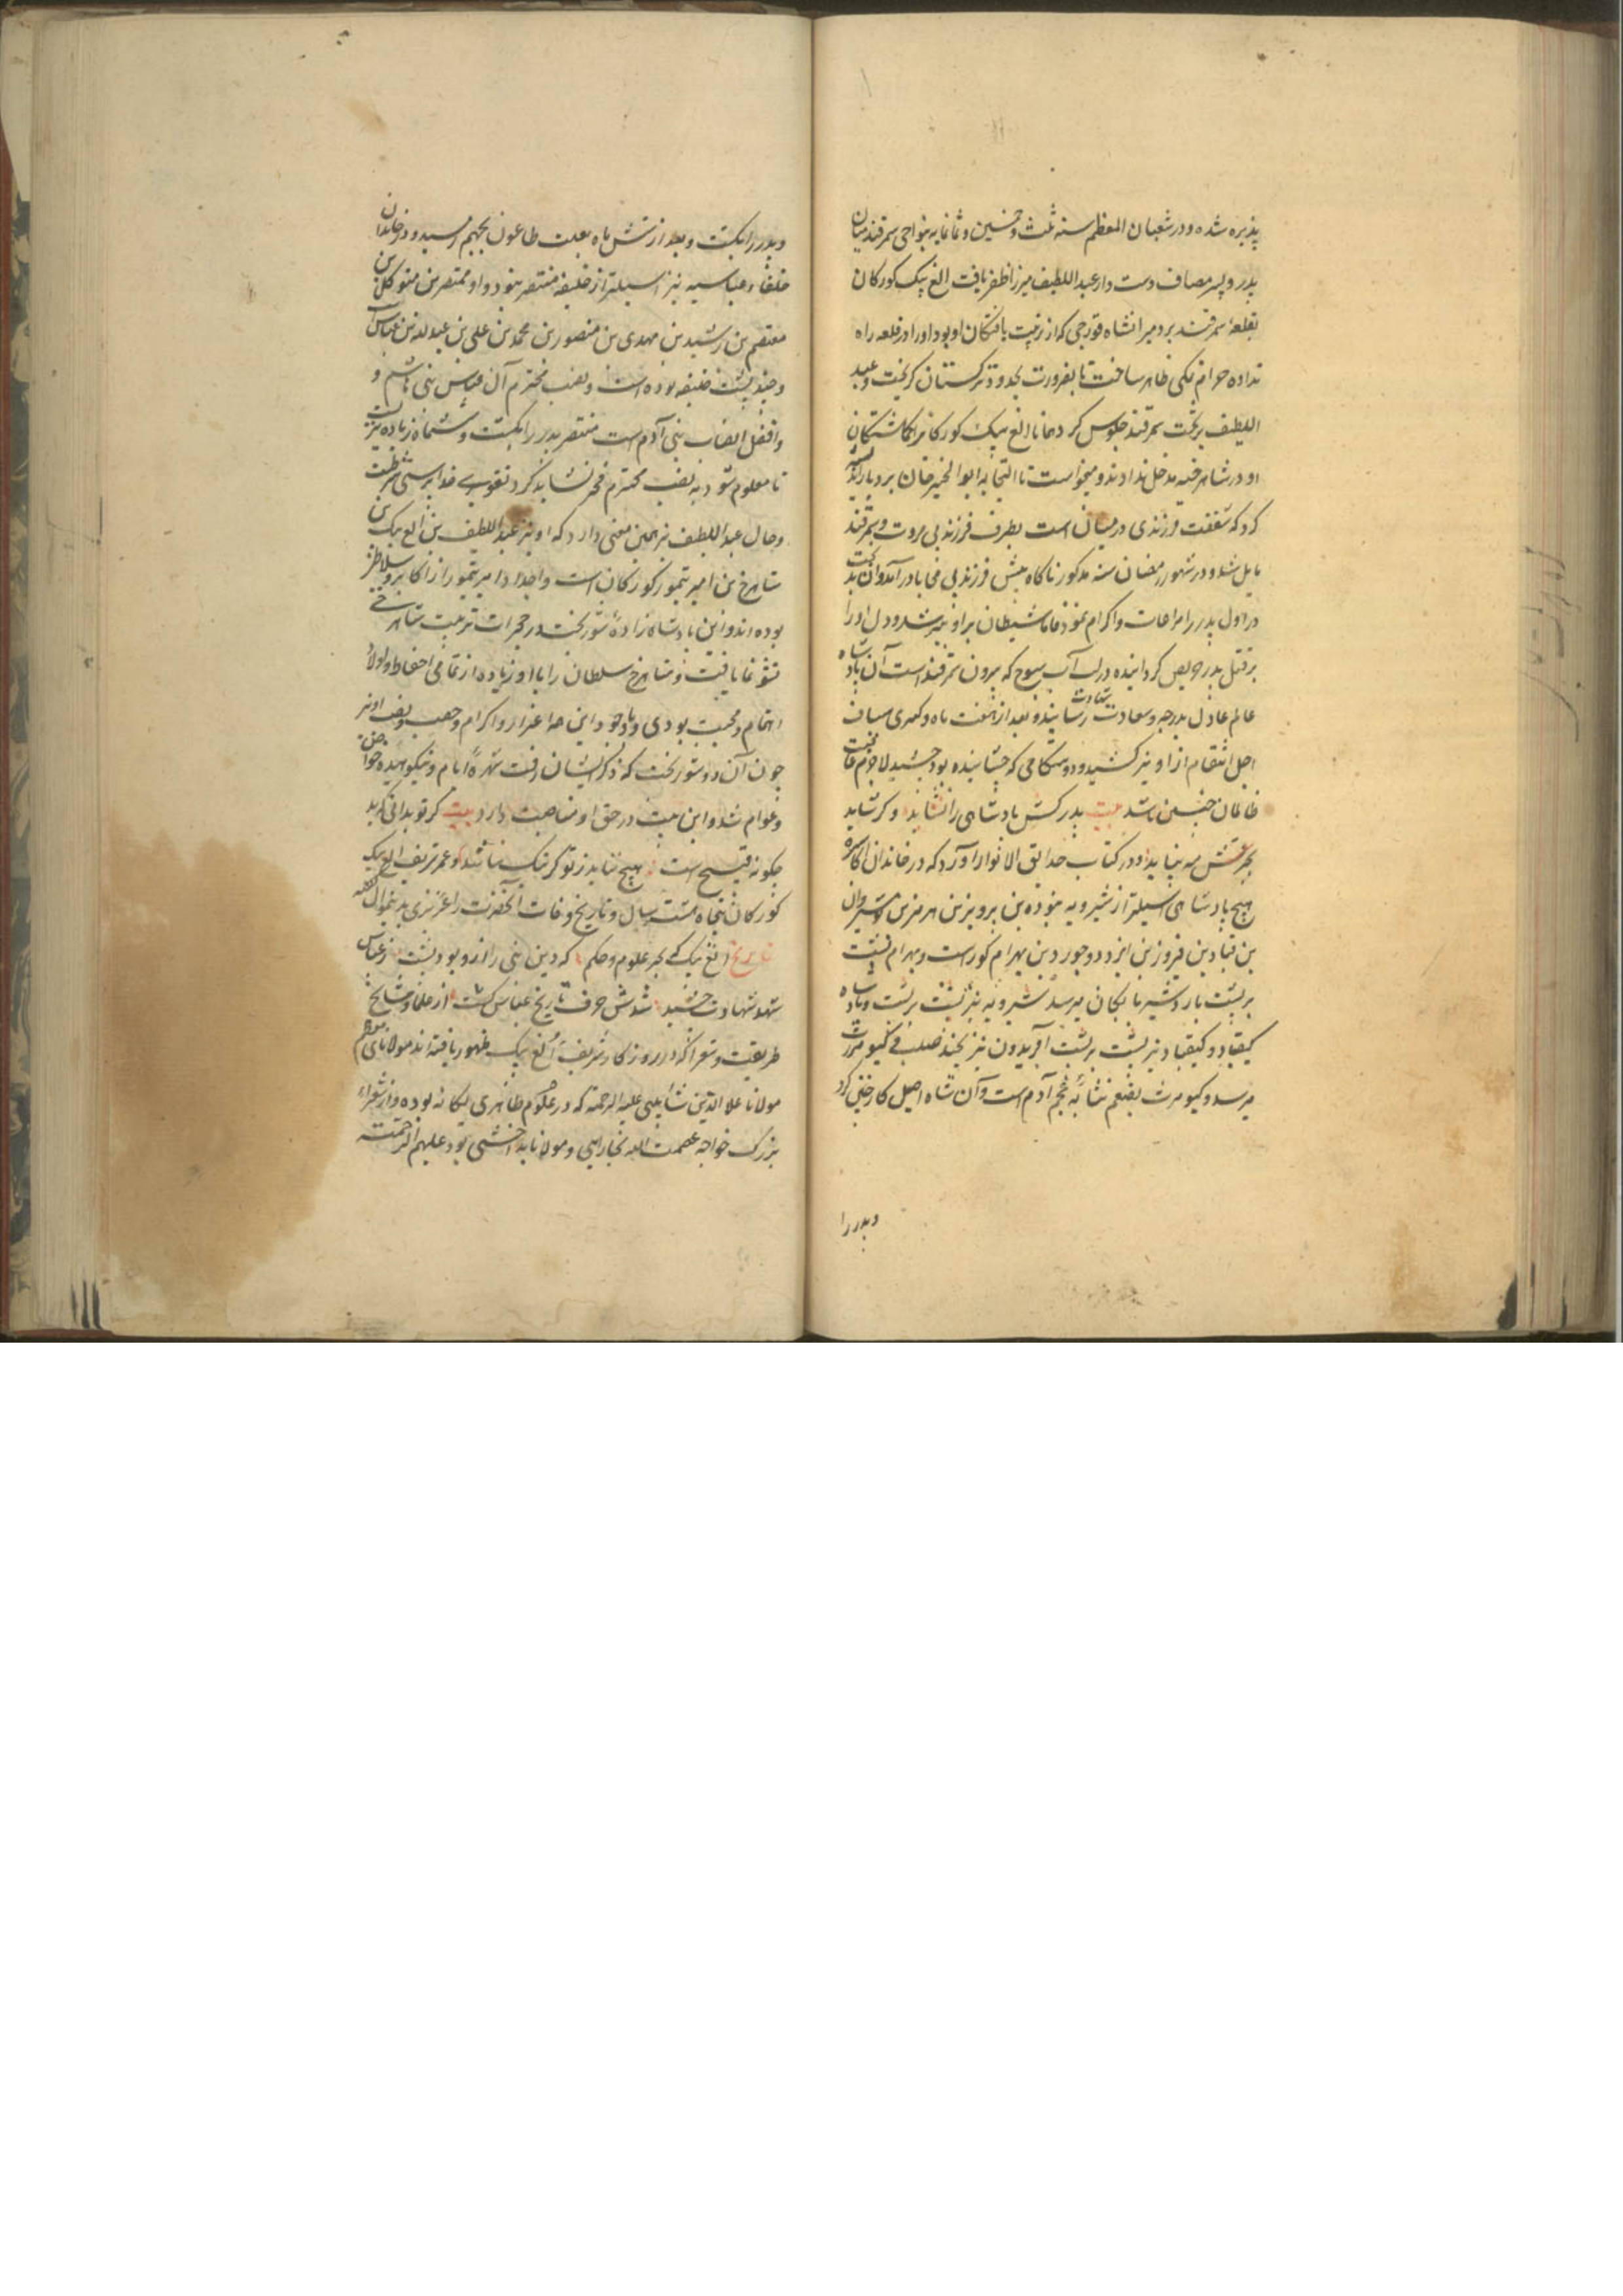 پذیره شده و در شعبان المعظم سنه ثلث و خمسین و ثمانمایه بنواحی سمرقند میان
پدر و پسر مصاف دست داد عبد اللطیف میرزا ظفر یافت الغ بیک کورکان
بقلعهٔ سمرقند برد میرانشاه قورچی که از تربیت یافتکان او بود او را در قلعه راه
نداده حرام نمکی ظاهر ساخت تا بضرورت بحدود ترکستان کریخت و عبد
اللطیف بر تخت سمرقند جلوس کرد الغ بیک کورکانرا کماشتکان
او در شاهرخیه مدخل ندادند و میخواست تا التجا به ابو الخیر خان برد باز اندیشه
کرد که شفقت فرزندی در میان است بطرف فرزند بی مروت و سمرقند
مایل شد و در شهور رمضان سنه مذکور ناکاه پیش فرزند بی محابا در آمد و آن بدبخت
در اول پدر را مراعات و اکرام نمود فاما شیطان بر او چیره شد و دل او را
بر قتل پدر حریص کردانیده در لب آب سوج که بیرون سمرقند است آن پادشاه
عالم عادل بدرجه و سعادت شهادت رسانید و بعد از هفت ماه و کسری سیاف
اجل انتقام از او نیز کشید و دوستکامی که چشانیده بود چشید لاجرم عاقبت
ظالمان چنین باشد بیت پدر کش پادشاهی را نشاید وکر شاید
بجز شش مه نپاید و در کتاب حدایق الانوار آورد که در خاندان اکاسره
هیچ پادشاهی اصیلتر از شیرویه نبوده بن پرویز بن هرمز بن انوشیروان
بن قباد بن فیروز بن ایزدجرد بن بهرام کور است و بهرام پشت
بر پشت باردشیر بابکان میرسد شیرویه نیز پشت بر پشت و پادشاه
کیقباد و کیقباد نیز پشت بر پشت آفریدون نیز بچند صلب فی کیومرث
میرسد و کیومرث بقم نشابه پنجم آدم است و آن شاه اصیل کار خبی کرد
و پدر را
و پدر را بکشت و بعد از شش ماه بعلت طاعون بجهنم رسید و در خاندان
خلفاء عباسیه نیز اصیلتر از خلیفه منتصر نبود و او منتصر بن متوکل بن
معتصم بن رشید بن مهدی بن منصور بن محمد بن علی بن عبد الله بن عباس است
و چند پشت خلیفه بوده است و نصب محترم آل عباس بنی هاشم و
و افضل انصاب بنی آدم است منتصر پدر را بکشت و ششماه زیاده نزیست
تا معلوم شود به نصب محترم فخر نشاید کرد تقوی و خدا ترسی شرطست
و حال عبد اللطیف نیز همین معنی دارد که او نیز عبد اللطیف بن الغ بیک بن
شاهرخ بن امیر تیمور کورکان است و اجداد امیر تیمور از اکابر و سلاطین
بوده اند و این پادشاه زادهٔ شور بخت در حجرات تربیت شاهرخی
نشو نما یافت و شاهرخ سلطان را با او زیاده از تمامی احفاد و اولاد
اهتمام و محبت بودی و باوجود این همه اعزاز و اکرام و حصب و نصب او نیز
چون آن دو شور بخت که ذکر ایشان رفت شهرهٔ ایام و نکوهیده خواص
و عوام شد و این بیت در حق او مناصبت دارد بیت کر تو بدانی که بد
چکونه قبیح است هیچ نیاید ز تو کر نیک نباشد و عمر شریف الغ بیک
کورکان پنجاه هشت سال و تاریخ وفات آنحضرت را عزیزی بدین منوال گفته
تاریخ الغ بیک بحر علوم و حکم که دین نبی را از و بود پشت ز عباس
شهد شهادت چشید شدش حرف تاریخ عباس کشت از علما و مشایخ
طریقت و شعرا که در روزکار شریف الغ بیک ظهور یافته اند مولانای مرحوم
مولانا علا الدین شاشی علیه الرحمه که در علوم ظاهری یکانه بوده و از شعراء
بزرک خواجه عصمت الله بخارایی و مولانا بدخشی بود علیهم الرحمته